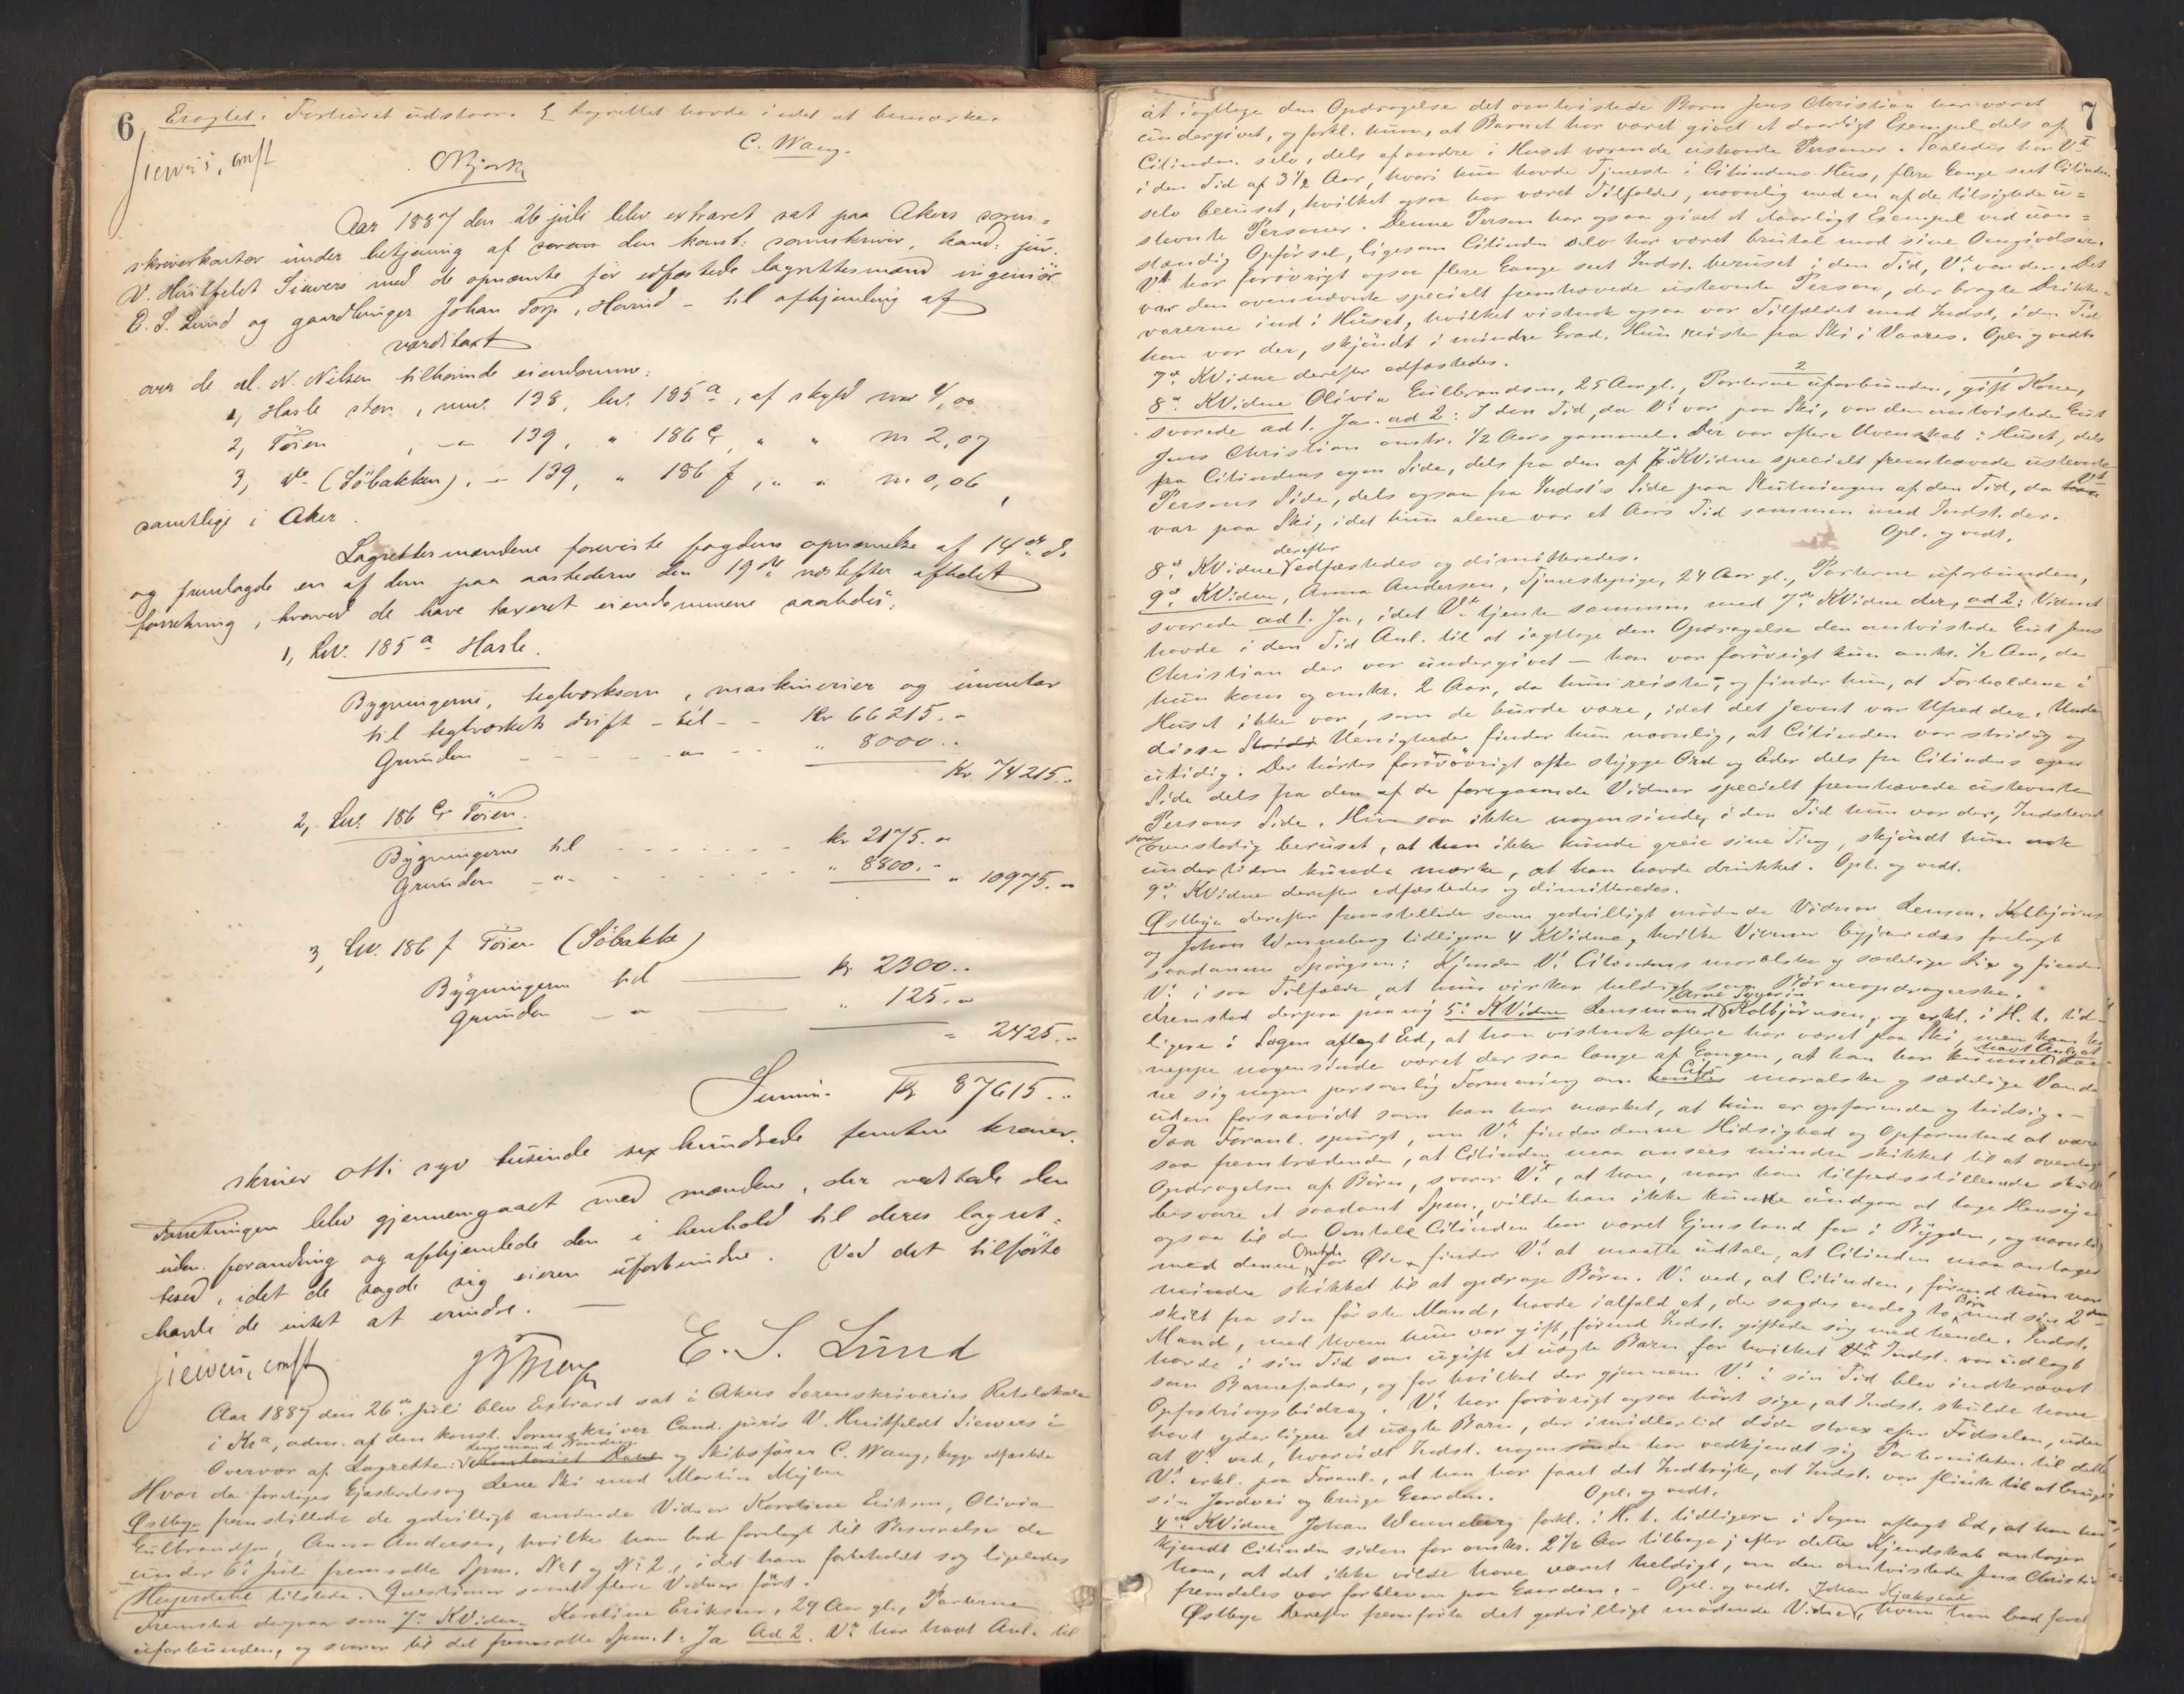 6
Eragtet: Forhøret udstaar. Lagrettet havde intet at bemærke.
C. Wang.
Siewers, const
Aar 1887 den 26 juli blev extraret sat paa Akers soren=
skriverkontor under betjening af den konst: sorenskriver, kand: jur.
V. Huitfeldt Siewers med de opnævnte før edfæstede lagrettesmænd ingeniør
E. S. Lund og gaardbruger Johan Torp, - til afhjemling af
værditaxt
over de al. N. Nilsen tilhørende eiendomme:
1, Hasle store, mno. 138, lno. 185 a, af skyld
2, Töien, -"- 139, " 186 , " " m 2,07
3, do (Söbakken), - 139, " 186 f, " " m 0,06,
samtlige i Aker.
Lagrettesmændene foreviste fogdens opnævnelse af 14de ds
og fremlagde en af dem paa aastederne den 19de næstefter afholdt
forretning, hvorved de have taxeret eiendommene saaledes:
1, Lno. 185 a Hasle.
Bygningerne, teglværksovn, maskinerier og inventar
til teglværkets drift - til - - Kr 66215. -
Grunden - - - " - - - " 8000. -
Kr 74215. -
2, Lno 186 Töien.
Bygningerne til - - - - - Kr 2175. -
Grunden - " - - - - " 8800. - " 10975. -
3, Lno. 186 f Töien (Söbakke)
Bygningerne til Kr 2300. -
Grunden - " " 125. -
" 2425. -
Summa Kr 87615. -
skriver otti syv tusinde sex hundrede femten kroner.
Forretningen blev gjennemgaaet med mændene, der vedtode den
uden forandring og afhjemlede den i henhold til deres lagret=
tesed, idet de sagde sig eieren uforbundne. Ved det tilførte
havde de intet at erindre. -
Siewers, const E. S. Lund
Aar 1887 den 26de Juli blev Extraret sat i Akers Sorenskriveries Retslokale
i Kra, adm. af den konst. Sorenskriver Cand. juris V. Huitfeldt Siewers i
Overvær af Lagrette: lensmand og Skibsfører C. Wang, begge edfæstede
Hvor da foretoges Gjæsteretssag Lene Ski mod Martin
Østbye fremstillede de godvilligt mødende Vidner Karoline Eriksen, Olivia
Gulbrandsen, Anna Andersen, hvilke han bad forelagt til Besvarelse de
under 6te Juli fremsatte Spm. No 1 og No 2, idet han forbeholdt sig ligeledes
Heyerdahl tilstede. Questioner samt flere Vidner ført.
Fremstod derpaa som 7de KVidne Karoline Eriksen, 29 Aar gl., Parterne
uforbunden, og svarer til det fremsatte Spm. 1: Ja Ad 2. Vt har havt Anl. til
7
at iagttage den Opdragelse det omtvistede Barn Jens Christian har været
undergivet, og forkl. hun, at Barnet har været givet et daarligt Exempel dels af
Citinden selv, dels af andre i Huset værende ustevnte Personer. Saaledes har Vt
i den Tid af 3½ Aar, hvori hun havde Tjeneste i Citindens Hus, flere Gange seet Citinden
selv beruset, hvilket ogsaa har været Tilfældet, navnlig med en af de tilsigtede u=
stevnte Personer. Denne Person har ogsaa givet et daarligt Exempel ved uan=
stændig Opførsel, ligesom Citinden selv har været brutal mod sine Omgivelser.
Vt har forøvrigt ogsaa flere Gange seet Indst. beruset i den Tid, Vt var der. Det
var den ovennævnte specielt fremhævede ustevnte Person, der bragte Drikke-
varerne ind i Huset, hvilket vistnok ogsaa var Tilfældet med Indst. i den Tid
han var der, skjøndt i mindre Grad. Hun reiste fra Ski i Vaares. Opl. og vedt.
7de KVidne derefter edfæstedes.
8de KVidne Olivia Gulbrandsen, 25 Aar gl., Parterne uforbunden, gift Kone,
svarede ad 1. Ja. ad 2: I den Tid, da Vt var paa Ski, var den omtvistede Gut
Jens Christian omtr. ½ Aars gammel. Der var oftere Uvenskab i Huset, dels
fra Citindens egen Side, dels fra den af 7de KVidne specielt fremhævede ustevnte
Persons Side, dels ogsaa fra Indst's Side paa Slutningen af den Tid, da Vt
var paa Ski, idet hun alene var et Aars Tid sammen med Indst. der.
Opl. og vedt.
8de KVidne derefter edfæstedes og dimitteredes.
9de KVidne, Anna Andersen, Tjenestepige, 24 Aar gl., Parterne uforbunden,
svarede ad 1. Ja, idet Vt tjente sammen med 7de KVidne der, ad 2: Vidnet
havde i den Tid Anl. til at iagttage den Opdragelse den omtvistede Gut Jens
Christian der var undergivet - han var forøvrigt kun omkr. ½ Aar, da
hun kom og omkr. 2 Aar, da hun reiste -, og finder hun, at Forholdene i
Huset ikke var, som de burde være, idet det jevnt var Ufred der. Under
disse Uenigheder finder hun navnlig, at Citinden var stridig og
utidig. Der hørtes forøvrigt ofte stygge Ord og Eder dels fra Citindens egen
Side dels fra den af de foregaaende Vidner specielt fremhævede ustevnte
Persons Side. Hun saa ikke nogensinde, i den Tid hun var der, Indstevnte
saa overstadig beruset, at han ikke kunde greie sine Ting, skjøndt hun nok
undertiden kunde mærke, at han havde drukket. Opl. og vedt.
9de KVidne derefter edfæstedes og dimitteredes.
Østbye derefter fremstillede som godvilligt mødende Vidner Lensm. Kolbjørnsen
og Johan Wenneberg tidligere 4 KVidne, hvilke Vidner begjæredes forelagt
saadanne Spørgsm: Kjender Vt Citindens moralske og sædelige Liv og finder
Vt i saa Tilfælde, at hun virker heldigt som Børneopdragerske.
Fremstod derpaa paany 5te KVidne Lensmand Kolbjørnsen, og erkl. i H. t. tid-
ligere i Sagen aflagt Ed, at han vistnok oftere har været paa Ski, men kan
neppe nogensinde været der saa længe af Gangen, at han har havt Anl. at dan-
ne sig nogen personlig Formening om Cit's moralske og sædelige Vandel
uden forsaavidt som han har mærket, at hun er opfarende og hidsig. -
Paa Foranl. spurgt, om Vt finder denne Hidsighed og Opfarenhed at være
saa fremtrædende, at Citinden maa ansees mindre skikket til at overtage
Opdragelsen af Børn, svarer Vt, at han, naar han tilfredsstillende skulde
besvare et saadant Spm., vilde han ikke kunne undgaa at tage Hensyn
ogsaa til den Omtale Citinden har været Gjenstand for i Bygden, og navnlig
med denne Omtale for Øie finder Vt at maatte udtale, at Citinden maa antages
mindre skikket til at opdrage Børn. Vt ved, at Citinden, førend hun var
skilt fra sin første Mand, havde ialfald et, der sagdes endog to Børn med sin 2den
Mand, med hvem hun var gift, førend Indst. giftede sig med hende. Indst.
havde i sin Tid som ugift et uægte Barn for hvilket Indst. var udlagt
som Barnefader, og for hvilket der gjennem Vt i sin Tid blev indkrævet
Opfostringsbidrag. Vt har forøvrigt ogsaa hørt sige, at Indst. skulde have
havt yderligere et uægte Barn, der imidlertid døde strax efter Fødselen, uden
at Vt ved, hvorvidt Indst. nogensinde har vedkjendt sig Paterniteten til dette
Vt erkl. paa Foranl., at han har faaet det Indtryk, at Indst. var flink til at bruge
sin Jordvei og bruge Gaarden. Opl. og vedt.
4de KVidne Johan Wenneberg forkl. i H. t. tidligere i Sagen aflagt Ed, at han har
kjendt Citinden siden for omkr. 2½ Aar tilbage; efter dette Kjendskab antager
han, at det ikke vilde have været heldigt, om den omtvistede Jens Christian
fremdeles var forbleven paa Gaarden. - Opl. og vedt. Johan Kjakstad
Østbye derefter fremførte det godvilligt mødende Vidne, hvem han bad forel